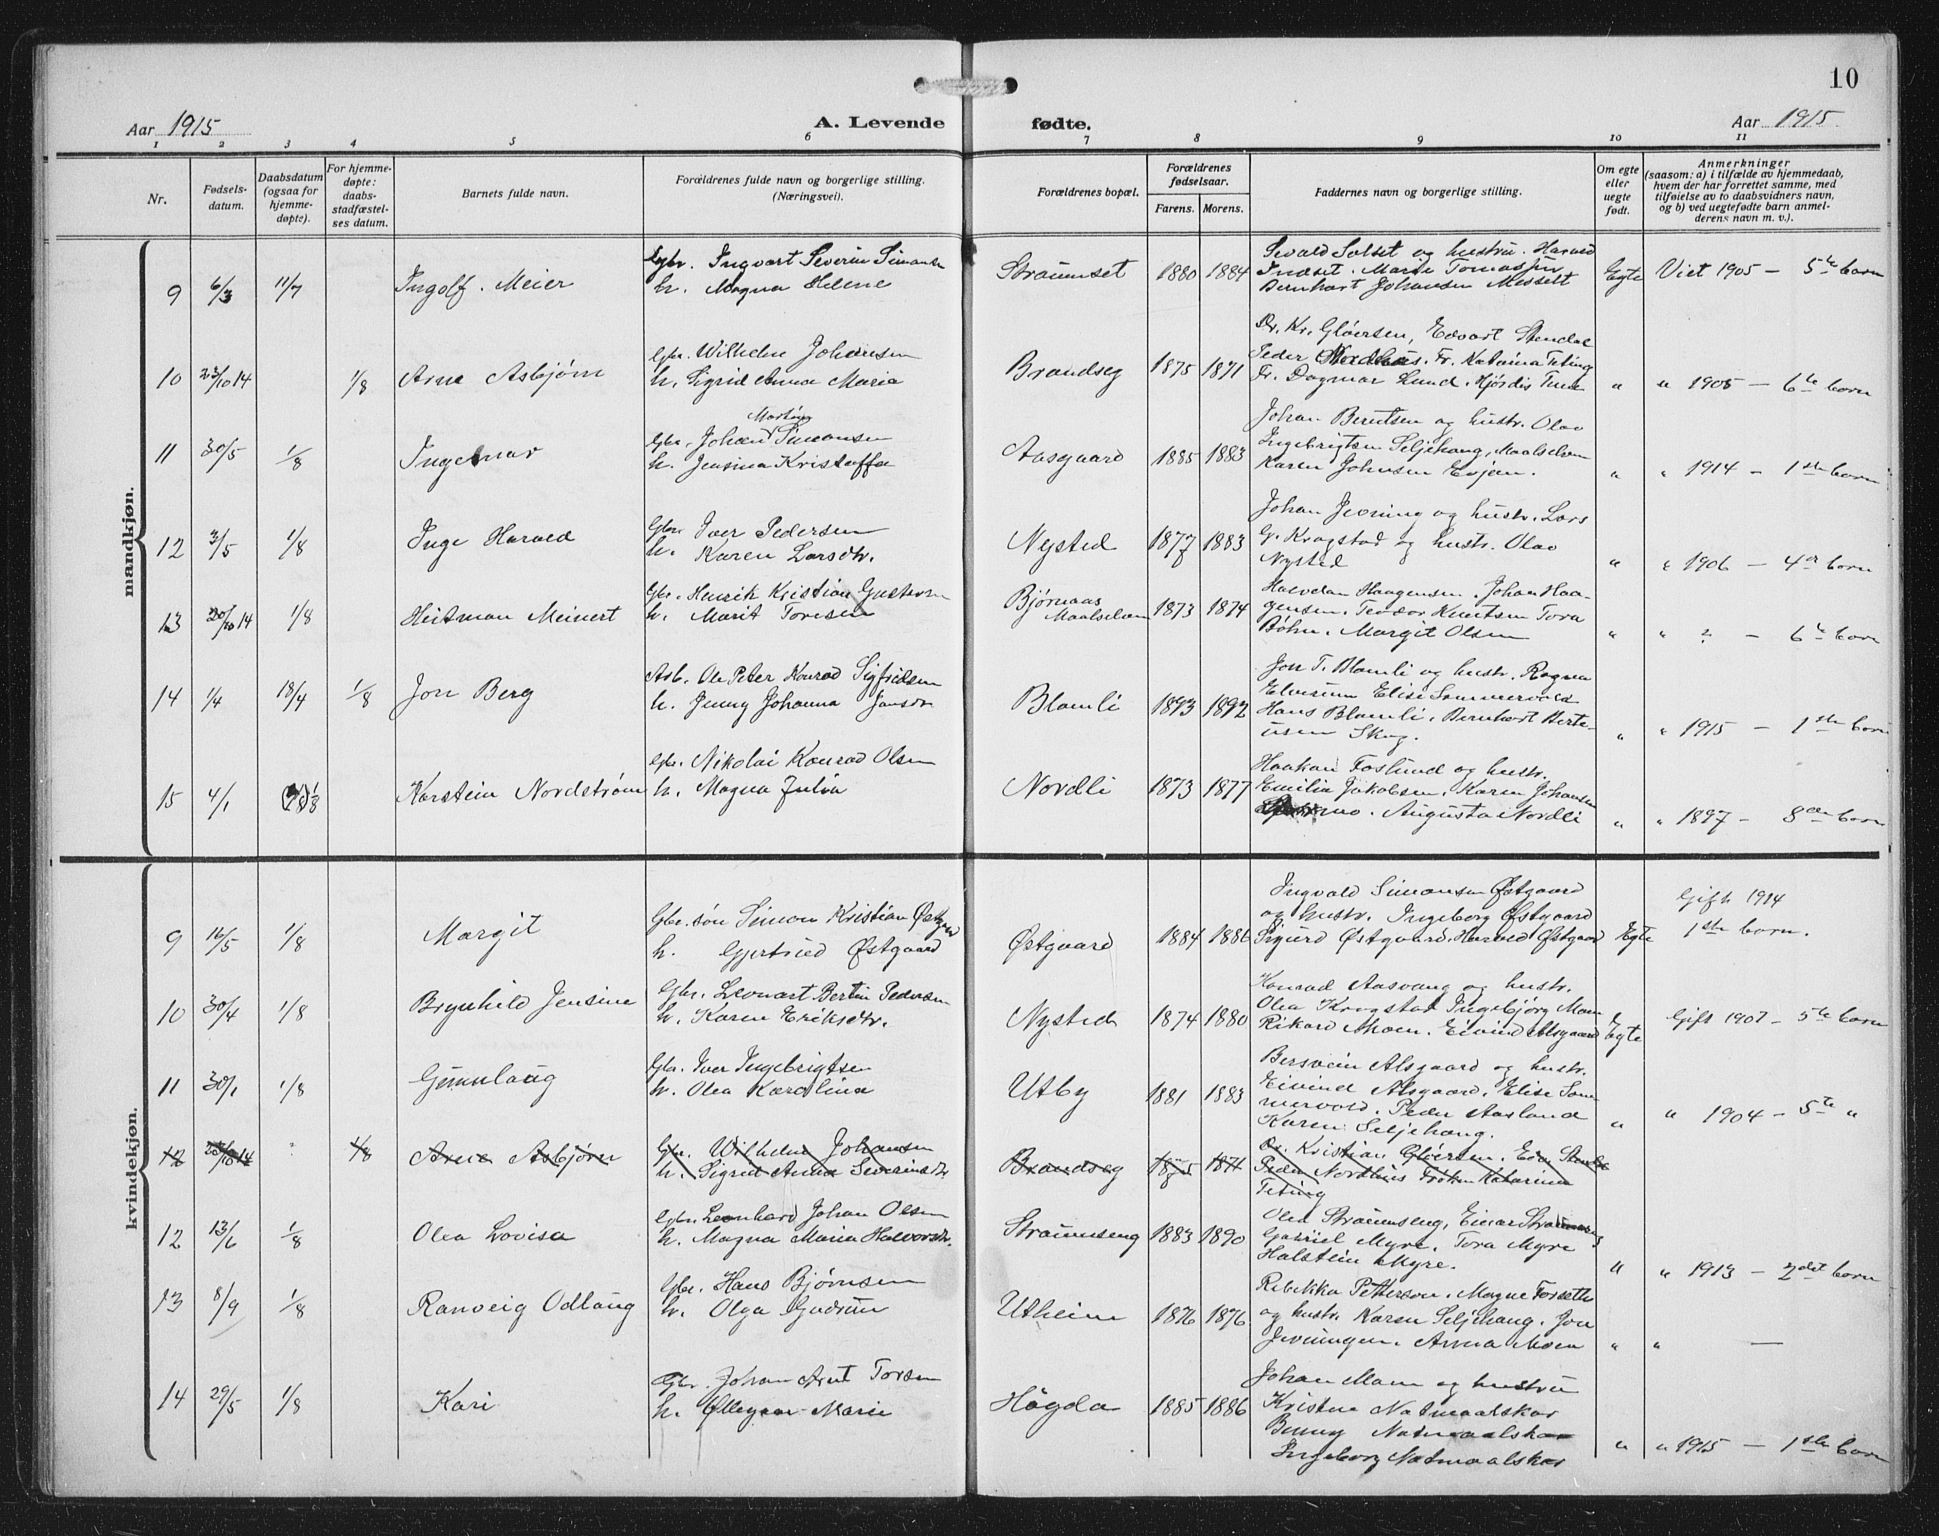 10
Aar 1915
A. Levende fødte.
Aar 1915.
1 2 3 4 5 6 7 8 9 10 11
Nr.
Fødsels-
datum.
Daabsdatum
(ogsaa for
hjemme-
døpte).
For hjemme-
døpte:
daabs-
stadfæstel-
ses datum.
Barnets fulde navn.
Forældrenes fulde navn og borgerlige stilling.
(Næringsvei).
Forældrenes bopæl.
Forældrenes
fødselsaar.
Farens. Morens.
Faddernes navn og borgerlige stilling.
Om egte
eller
uegte
født.
Anmerkninger
(saasom: a) i tilfælde av hjemmedaab,
hvem der har forrettet samme, med
tilføielse av to daabsvidners navn,
og b) ved uegtefødte barn anmel-
derens navn m. v.).
mandkjøn.
9 6/3 11/7 Ingolf. Meier
Gbr. Ingvart Severin Simonsen
h. Magna Helene
Straumset 1880 1884
Sevald Solset og hustru. Harald
Indset. Marie Tomassen
Bernhart Johansen Messelt
Egte Viet 1905 - 5te barn
10 23/10 14 1/8 Arne Asbjørn
Gbr. Wilhelm Johansen
h. Sigrid Anna Maria
Brandseg 1875 1871
Dr. Kr. Gløersen, Edvart Stendal
Peder Nordhus. Fr. Katarina Teting
Fr. Dagmar Lund. Hjørdis
" " 1905 - 6te barn
11 30/5 1/8 Ingemar
Gbr. Johan Martin Simonsen
h. Jensina Kristoffa
Aasgaard 1885 1883
Johan Berntsen og hustr. Olav
Ingebrigtsen Seljehaug, Maalselven
Karen Johnsen Evjen.
" " 1914 - 1ste barn
12 3/5 1/8 Inge Harald
Gbr. Iver Pedersen
h. Karen Larsdtr.
Nysted 1877 1883
Johan Jevning og hustr. Lars
G. Kragstad og hustr. Olav
Nysted
" " 1906 - 4de barn
13 20/10 14 1/8 Heitman Meinert
Gbr. Henrik Kristian Gustavsen
h. Marit Toresen
Bjørnaas
Maalselven 1873 1874
Halvdan Haagensen. Johan Haa-
gensen. Teodor Knutsen Tora
Bøhn. Margit Olsen
" " ? - 6te barn
14 1/4 18/4 1/8 Jon Berg
Arb. Ole Peter Konrad Sigfridsen
h. Jenny Johanna Jonsdr
Blamli 1893 1892
Jon T. Blamli og hustr. Ragna
Elvesum Elise Sommervold
Hans Blamli. Bernhart Berte-
usen Skog.
" " 1915 - 1ste barn
15 4/1 1/8 Karstein Nordstrøm
Gbr. Nikolai Konrad Olsen
h. Magna Julia
Nordli 1873 1877
Haakon Foslund og hustr.
Emilia Jakobsen. Karen Johansen
mo. Augusta Nordli
" " 1897 - 8de barn
kvindekjøn.
9 16/5 1/8 Margit
Gbr. søn Simon Kristian Østgaard
h. Gjertrud Østgaard
Østgaard 1884 1886
Ingvald Simonsen Østgaard
og hustr. Ingeborg Østgaard
Sigurd Østgaard. Harald Østgaard
Egte Gift 1914
1ste barn.
10 30/4 1/8 Brynhild Jensine
Gbr. Leonart Bertin Pedersen
h. Karen Eriksdtr.
Nysted 1874 1880
Konrad Aasvang og hustr.
Olea Kragstad Ingebjørg Moen
Rikard Moen. Eivind Alsgaard
Egte Gift 1907 - 5te barn
11 30/1 1/8 Gunnlaug
Gbr. Iver Ingebrigtsen
h. Olea Karolina
Utby 1881 1883
Bersvein Alsgaard og hustr.
Eivind Alsgaard. Elise Som-
mervold. Peder Aasland
Karen Seljehaug.
" " 1904 - 5te "
12 23/10 14 1/8 Arne Asbjørn
Gbr. Wilhelm Johansen
h. Sigrid Anna Severinsdtr
Brandseg 1875 1871
Dr. Kristian Gløersen. Edv. Stendal
Peder Nordhus Frøken Katarina
Teting
12 13/6 1/8 Olea Lovisa
Gbr. Leonhard Johan Olsen
h. Magna Maria Halvorsdtr.
Straumseng 1883 1890
Olea Straumseng, Einar Straumseng
Gabriel Myre. Tora Myre
Halstein Myre.
" " 1913 - 2det barn
13 8/9 1/8 Ranveig Odlaug
Gbr. Hans Bjørnsen
h. Olga Gudrun
Utheim 1876 1876
Rebekka Petterson. Magne Forseth
og hustr. Karen Seljehaug. Jon
Jevningen. Anna Moen
" " -
14 29/5 1/8 Kari
Gbr. Johan Arnt Torsen
h. Ollegaar Marie
Høgda 1885 1886
Johan Moen og hustru
Kristine Natmaalskar
Benny Natmaalskar
Ingeborg Natmaalskar
" " 1915 - 1ste barn